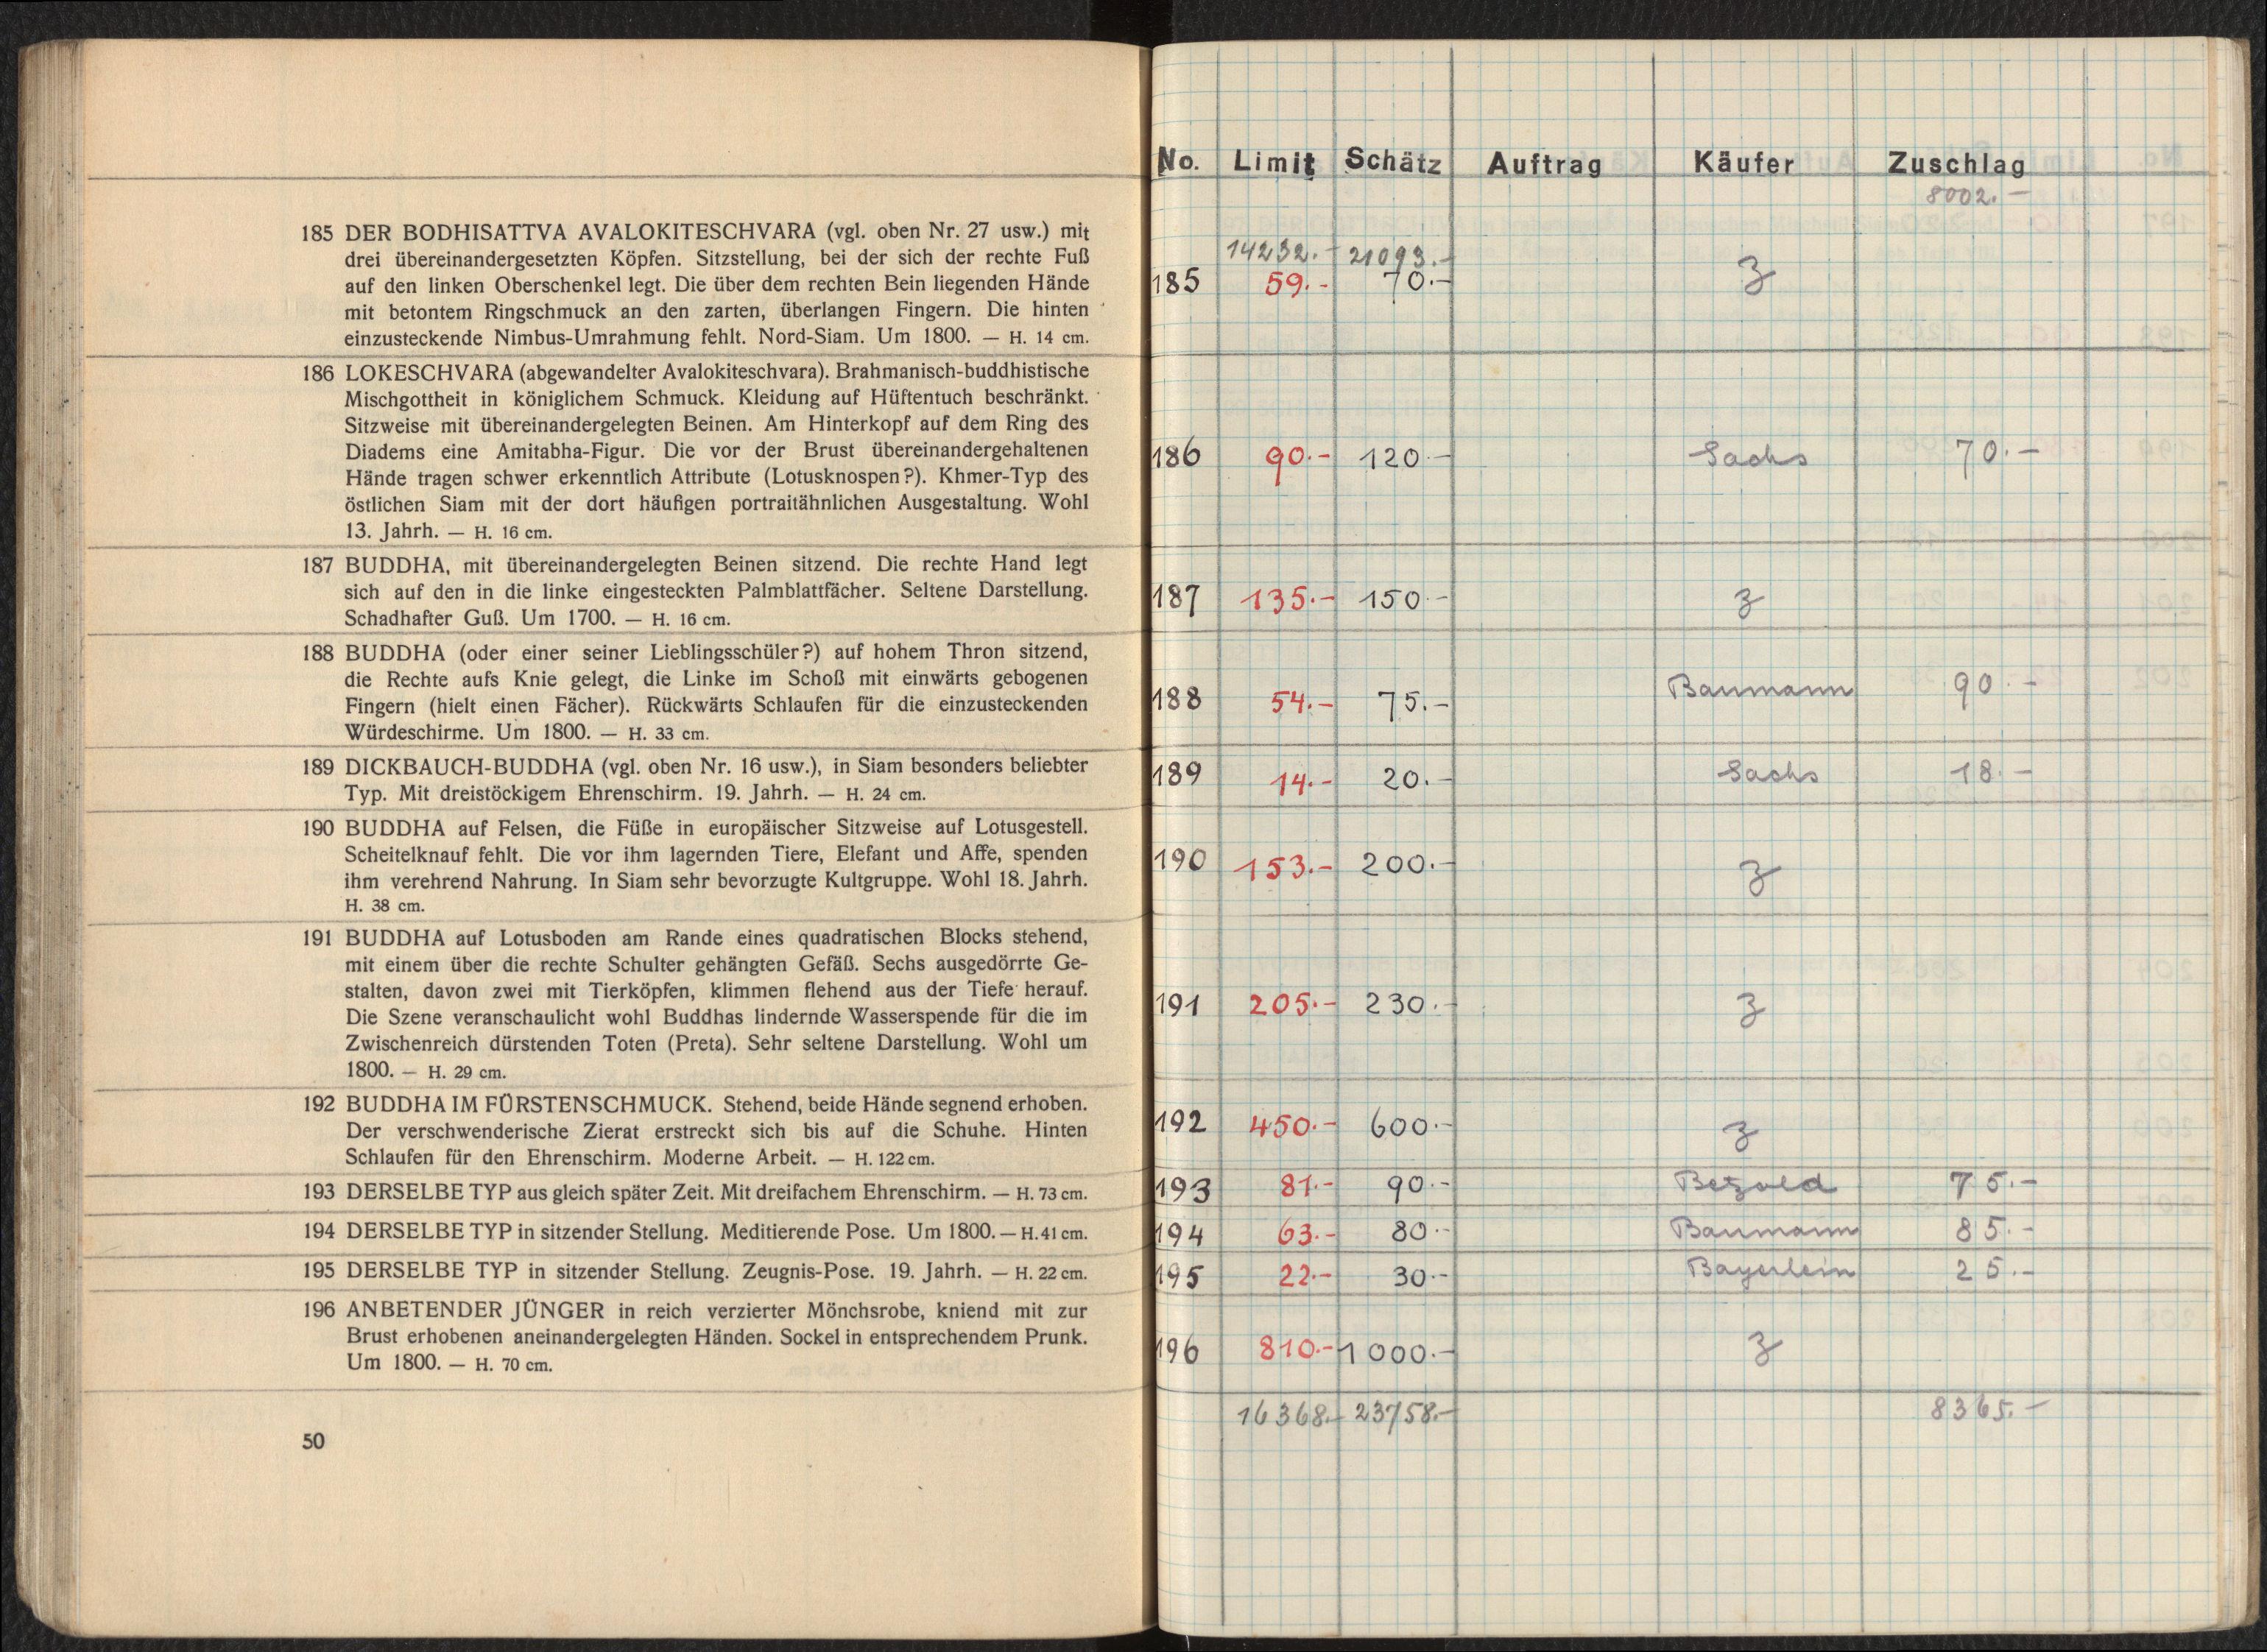 185 DER BODHISATTVA AVALOKITESCHVARA (vgl. oben Nr. 27 usw.) mit
drei übereinandergesetzten Köpfen. Sitzstellung, bei der sich der rechte Fuß
auf den linken Oberschenkel legt. Die über dem rechten Bein liegenden Hände
mit betontem Ringschmuck an den zarten, überlangen Fingern. Die hinten
einzusteckende Nimbus-Umrahmung fehlt. Nord-Siam. Um 1800. — H. 14 cm.
186 LOKESCHVARA (abgewandelter Avalokiteschvara). Brahmanisch-buddhistische
Mischgottheit in königlichem Schmuck. Kleidung auf Hüftentuch beschränkt.
Sitzweise mit übereinandergelegten Beinen. Am Hinterkopf auf dem Ring des
Diadems eine Amitabha-Figur. Die vor der Brust übereinandergehaltenen
Hände tragen schwer erkenntlich Attribute (Lotusknospen?). Khmer-Typ des
östlichen Siam mit der dort häufigen portraitähnlichen Ausgestaltung. Wohl
13. Jahrh. — H. 16 cm.
187 BUDDHA, mit übereinandergelegten Beinen sitzend. Die rechte Hand legt
sich auf den in die linke eingesteckten Palmblattfächer. Seltene Darstellung.
Schadhafter Guß. Um 1700. — H. 16 cm.
188 BUDDHA (oder einer seiner Lieblingsschüler?) auf hohem Thron sitzend,
die Rechte aufs Knie gelegt, die Linke im Schoß mit einwärts gebogenen
Fingern (hielt einen Fächer). Rückwärts Schlaufen für die einzusteckenden
Würdeschirme. Um 1800. — H. 33 cm.
189 DICKBAUCH-BUDDHA (vgl. oben Nr. 16 usw.), in Siam besonders beliebter
Typ. Mit dreistöckigem Ehrenschirm. 19. Jahrh. — H. 24 cm.
190 BUDDHA auf Felsen, die Füße in europäischer Sitzweise auf Lotusgestell.
Scheitelknauf fehlt. Die vor ihm lagernden Tiere, Elefant und Affe, spenden
ihm verehrend Nahrung. In Siam sehr bevorzugte Kultgruppe. Wohl 18. Jahrh.
H. 38 cm.
191 BUDDHA auf Lotusboden am Rande eines quadratischen Blocks stehend,
mit einem über die rechte Schulter gehängten Gefäß. Sechs ausgedörrte Ge-
stalten, davon zwei mit Tierköpfen, klimmen flehend aus der Tiefe herauf.
Die Szene veranschaulicht wohl Buddhas lindernde Wasserspende für die im
Zwischenreich dürstenden Toten (Preta). Sehr seltene Darstellung. Wohl um
1800. — H. 29 cm.
192 BUDDHA IM FÜRSTENSCHMUCK. Stehend, beide Hände segnend erhoben.
Der verschwenderische Zierat erstreckt sich bis auf die Schuhe. Hinten
Schlaufen für den Ehrenschirm. Moderne Arbeit. — H. 122 cm.
193 DERSELBE TYP aus gleich später Zeit. Mit dreifachem Ehrenschirm. — H. 73 cm.
194 DERSELBE TYP in sitzender Stellung. Meditierende Pose. Um 1800. — H. 41 cm.
195 DERSELBE TYP in sitzender Stellung. Zeugnis-Pose. 19. Jahrh. — H. 22 cm.
196 ANBETENDER JÜNGER in reich verzierter Mönchsrobe, kniend mit zur
Brust erhobenen aneinandergelegten Händen. Sockel in entsprechendem Prunk.
Um 1800. — H. 70 cm.
50
No. Limit Schätz Auftrag Käufer Zuschlag
8002.-
14232.- 21093.-
185 59.- 70.- z
186 90.- 120.- Sachs 70.-
187 135.- 150.- z
188 54.- 75.- Baumann 90.-
189 14.- 20.- Sachs 18.-
190 153.- 200.- z
191 205.- 230.- z
192 450.- 600.- z
193 81.- 90.- Bezold 75.-
194 63.- 80.- Baumann 85.-
195 22.- 30.- Bayerlein 25.-
196 810.- 1000.- z
16368.- 23758.- 8365.-